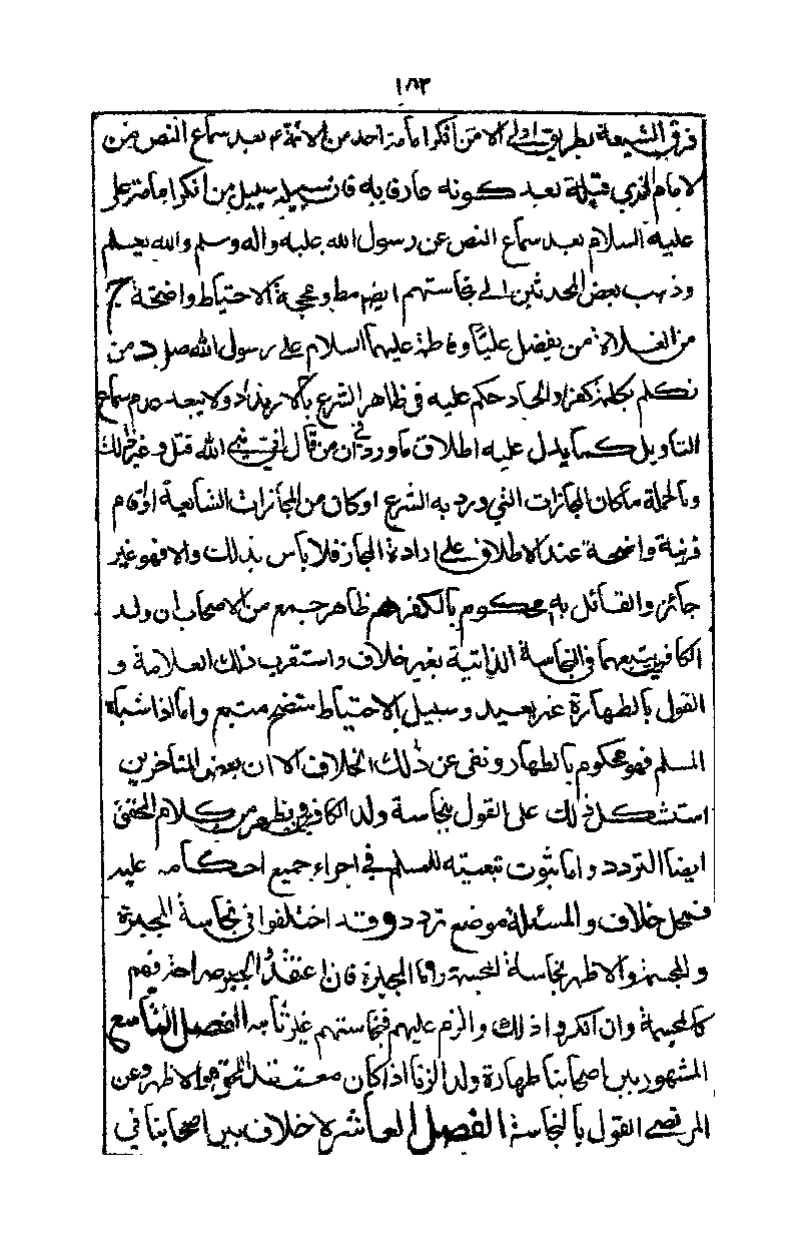 ١٨٣
فرق الشيعة بطريق اولى الا من انكر امامة احد من الائمة ع بعد سماع النص من
الامام الذي قبله بعد كونه عارفا به فان سبيله سبيل من انكر امامة علي
عليه السلام بعد سماع النص عن رسول الله عليه واله وسلم والله يعلم
وذهب بعض المحدثين الى نجاستهم ايضا مط وعجية الاحتياط واضحة ج
من الغلاة من يفضل عليّا وفاطمة عليهما السلام على رسول الله ص د من
تكلم بكلمة كفر والحاد حكم عليه في ظاهر الشرع بالارتداد ولا يبعد عدم سماع
التاويل كما يدل عليه اطلاق ماورد في ان من قال انى نبي الله قتل وغير ذلك
وبالجملة ما كان المجازات التي ورد به الشرع اوكان من المجازات الشايعة اوقام
قرينة واضحة عند الاطلاق على ارادة المجاز فلا باس بذلك والا فهو غير
جائز والقائل به محكوم بالكفر هم ظاهر جمع من الاصحاب ان ولد
الكافرين يتبعهما في النجاسة الذاتية بغير خلاف واستقرب ذلك العلامة و
القول بالطهارة غير بعيد وسبيل الاحتياط متضح متبع واما اذا سباه
المسلم فهو محكوم بالطهارة ونفى عن ذلك الخلاف الا ان بعض المتاخرين
استشكل ذلك على القول بنجاسة ولد الكافرين ويظهر من كلام المحقق
ايضا التردد واما ثبوت تبعيته للمسلم في اجراء جميع احكامه عليه
فمحل خلاف والمسئلة موضع تردد وقد اختلفوا في نجاسة المجبرة
والمجسمة والاظهر نجاسة المجسمة واما المجبرة فان اعتقدوا الجبر صراحة فهم
كالمجسمة وان انكروا ذلك والزم عليهم فنجاستهم غير ثابتة الفصل التاسع
المشهور بين اصحابنا طهارة ولد الزنا اذا كان معتقد الحق وهو الاظهر وعن
المرتضى القول بالنجاسة الفصل العاشر لا خلاف بين اصحابنا في